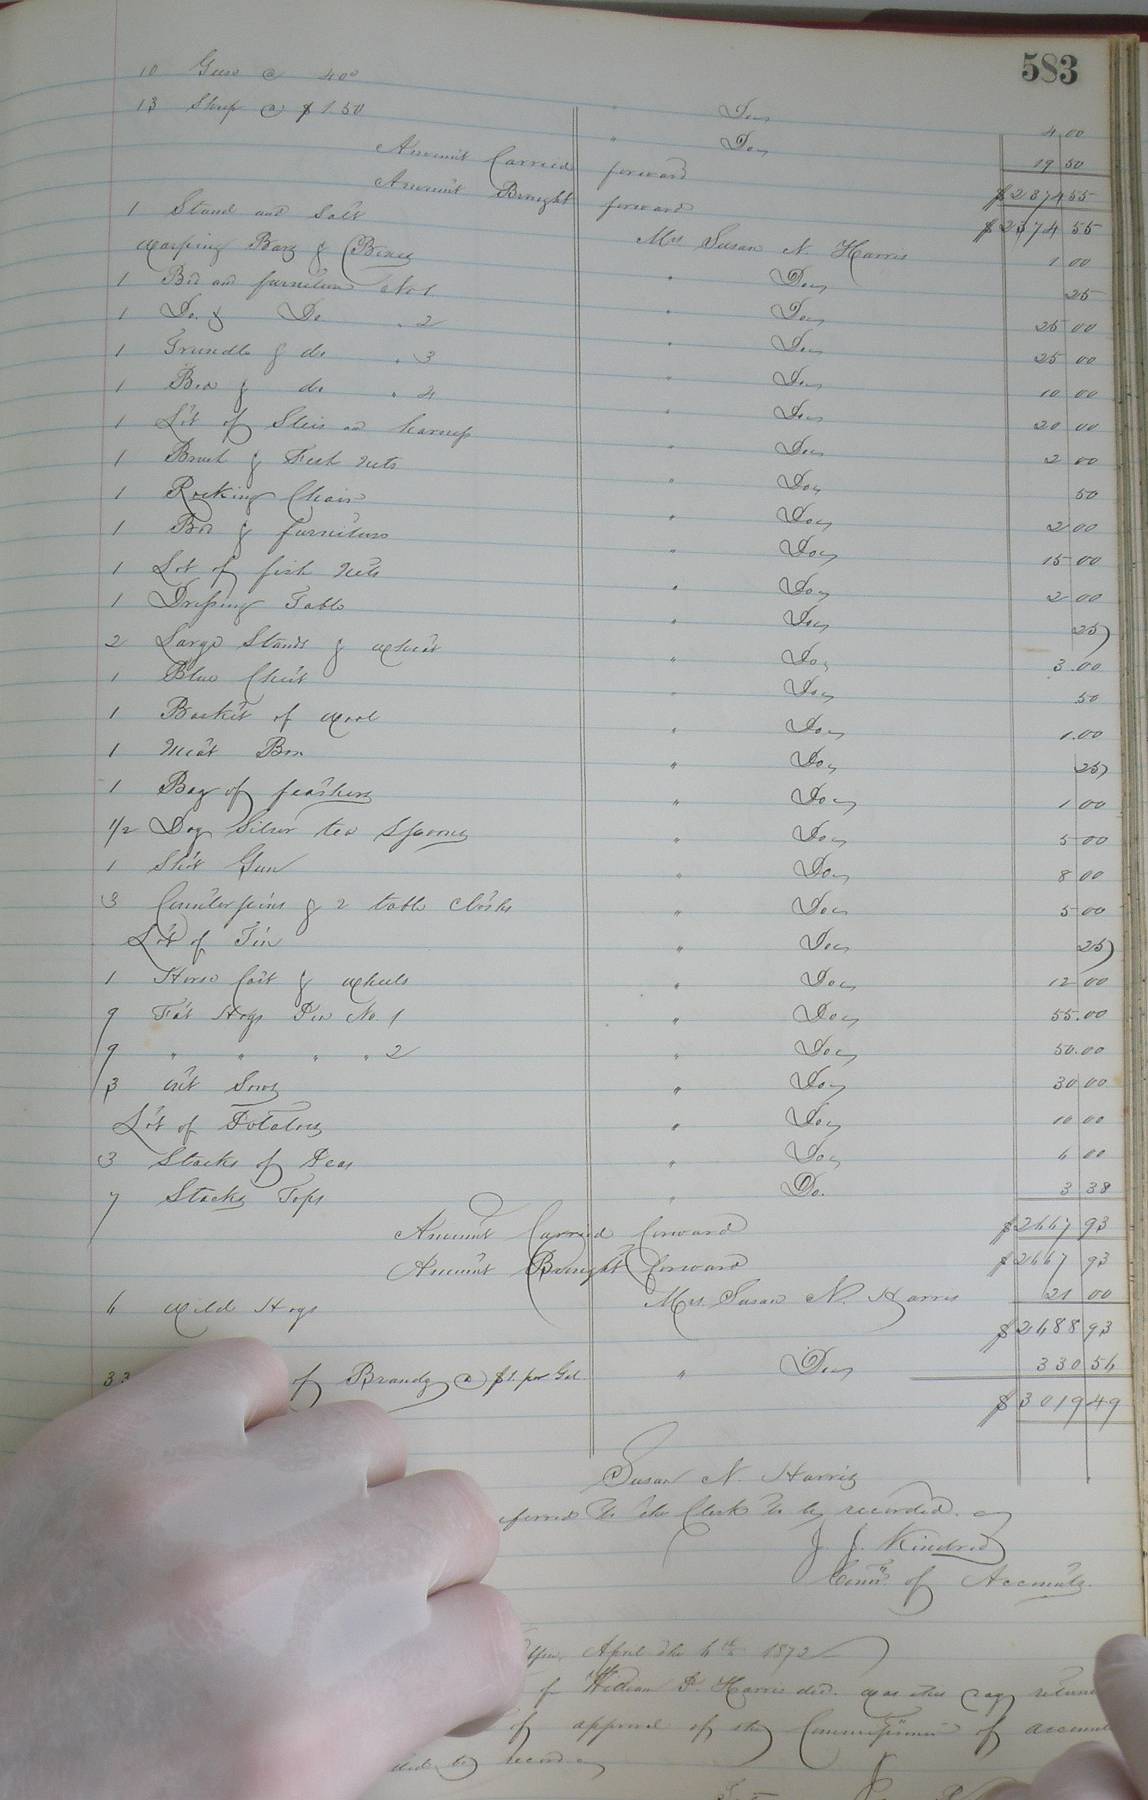 583
10 Geese @ 40¢ " Do 4 00
13 Sheep @ $1.50 " Do 19 50
Amount Carried forward $2374 55
Amount Brought forward $2374 55
1 Stand and Salt Mrs Susan N. Harris 1 00
Warping Bars & Boxes " Do 25
1 Bed and furniture No 1 " Do 25 00
1 Do. & Do " 2 " Do 25 00
1 Trundle & do " 3 " Do 10 00
1 Bed & do " 4 " Do 20 00
1 Lot of Sleis and harness " Do 2 00
1 & Nets " Do 50
1 Rocking Chair " Do 2 00
1 Bed & furniture " Do 15 00
1 Lot of fish Nets " Do 2 00
1 Dressing Table " Do 25
2 Large Stands & Wheat " Do 3.00
1 Blue Chest " Do 50
1 Basket of Wool " Do 1.00
1 Meat Box " Do 25
1 Bag of feathers " Do 1 00
1/2 Doz Silver tea Spoons " Do 5 00
1 Shot Gun " Do 8 00
3 Counterpins & 2 table Cloths " Do 5 00
Lot of Tin " Do 25
1 Horse Cart & Wheels " Do 12 00
9 Fat Hogs Pen No. 1 " Do 55.00
9 " " " " 2 " Do 50.00
3 out Sows " Do 30 00
Lot of Potatoes " Do 10 00
3 Stacks of Peas " Do 6 00
7 Stacks Tops " Do. 3 38
Amount Carried forward $2667 93
Amount Brought forward $2667 93
6 Wild Hogs Mrs. Susan N. Harris 21 00
$2688 93
33 of Brandy @ $1. per Gal " Do 330 56
$3019 49
Susan N. Harris
to the Clerk to be recorded.
J. J. Kindred
Comr. of Accounts.
April the 6th 1872
of William P. Harris decd. was this day
of approval of the Commissioner of
to be recorded